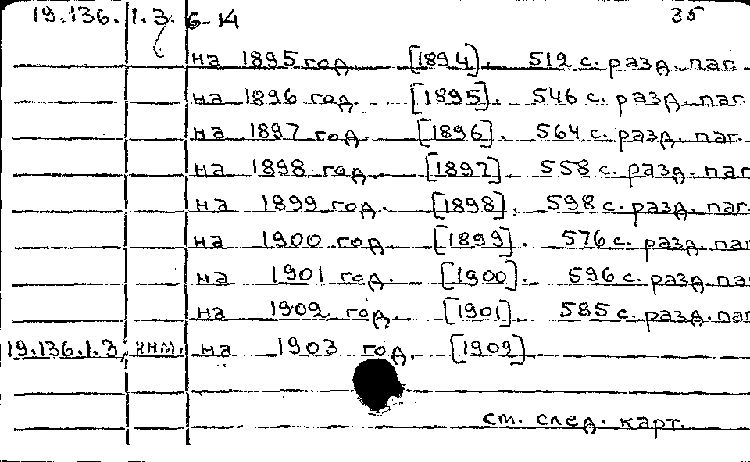 19.136.1.3. 6-14 35
на 1895 год [1894]. 512 с. разд. паг.
на 1896 год. [1895]. 546 с. разд. паг.
на 1897 год. [1896]. 564 с. разд. паг.
на 1898 год. [1897]. 558 с. разд. паг.
на 1899 год. [1898]. 598 с. разд. паг.
на 1900 год. [1899]. 576 с. разд. паг
на 1901 год. [1900]. 596 с. разд. паг
на 1902 год. [1901]. 585 с. разд. паг
19.136.1.3, на 1903 год. [1902]
см. след. карт.